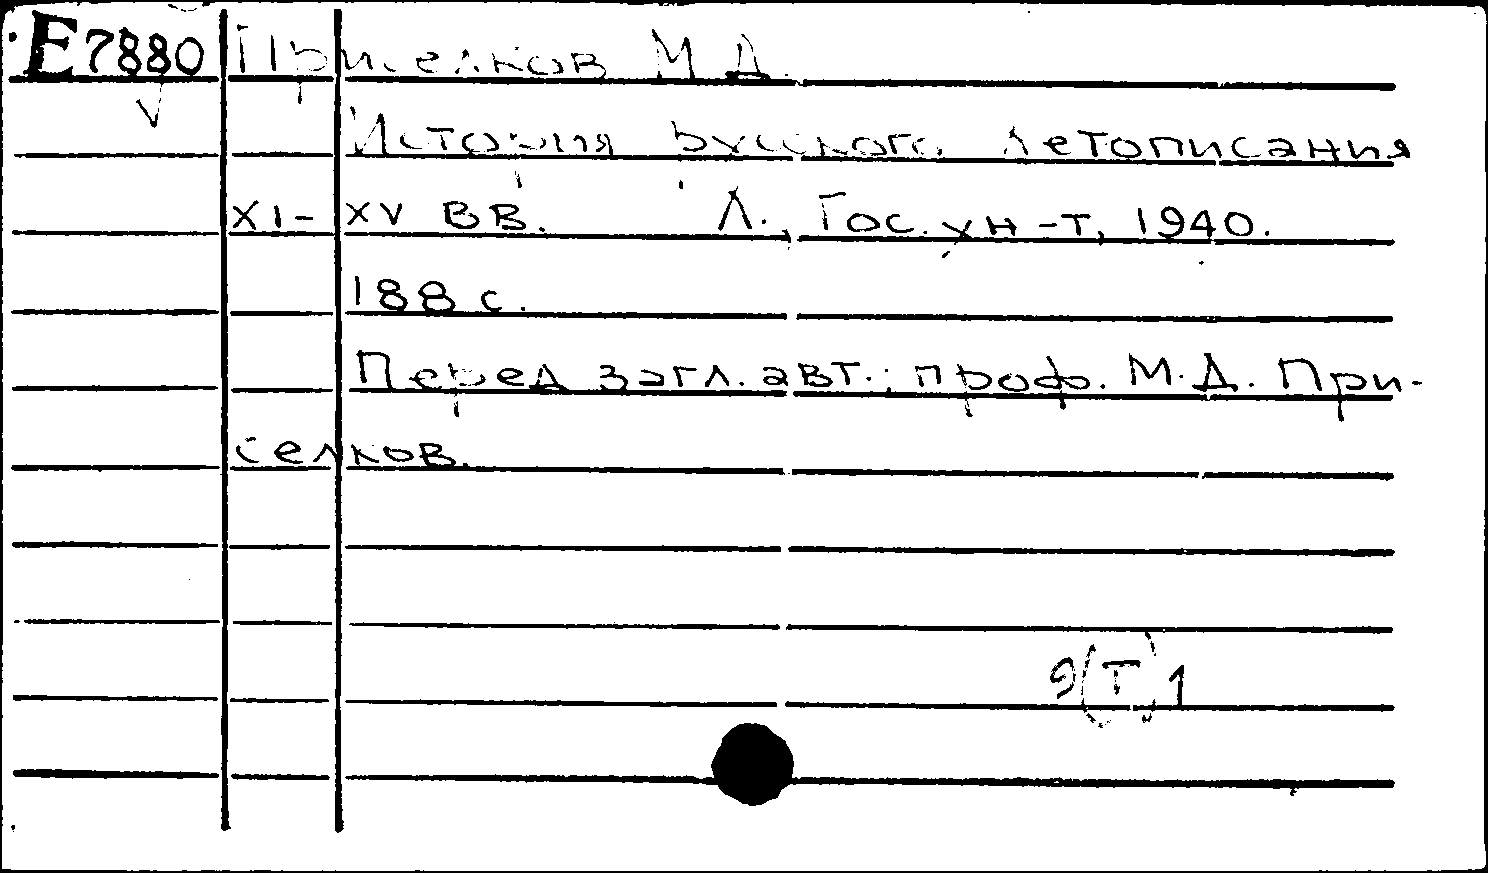 E7880 Приселков М.Д.
История русского летописания
XI-XV вв. Л., Гос. ун-т, 1940.
188 с.
Перед загл. авт.: проф. М.Д. При-
селков.
9(Т)1